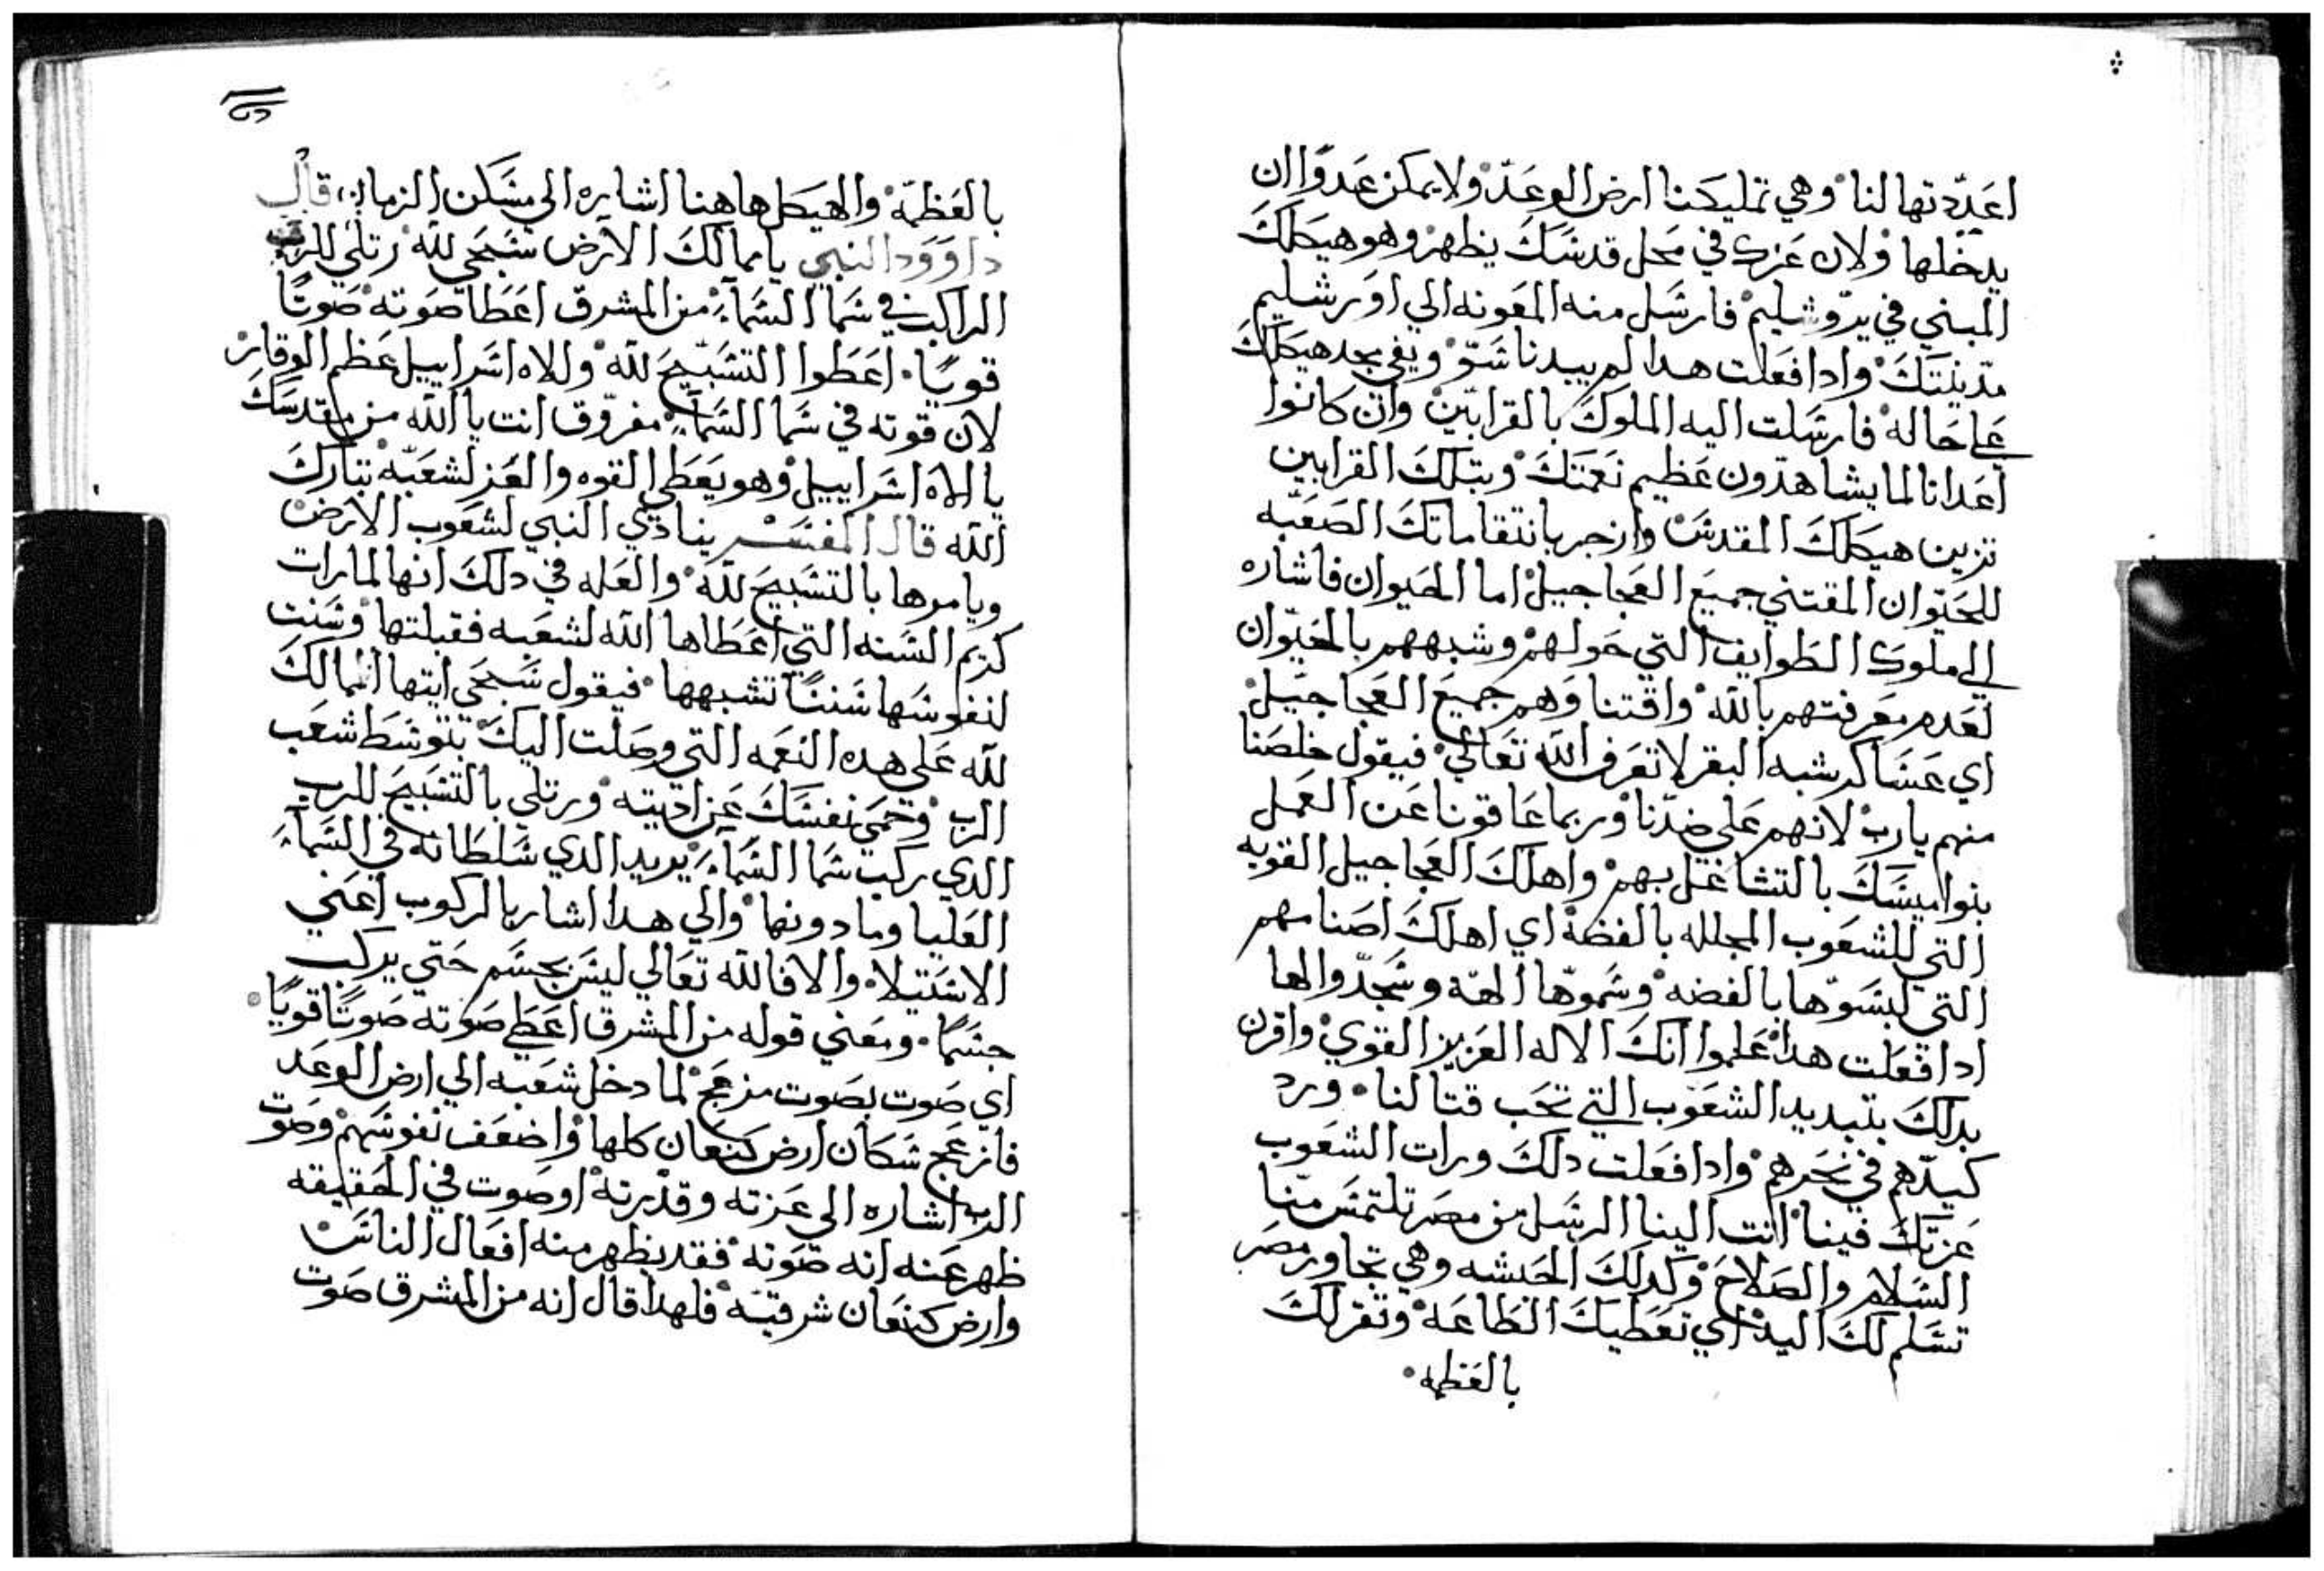 اعددتها لنا وهي تمليكنا ارض الوعد ولا يمكن عدوا ان
يدخلها ولان عزك في محل قدسك يظهر وهو هيكلك
المبني في يروشليم فارسل منه المعونه الي اورشليم
مدينتك وادا فعلت هدا لم يبدنا سو وبقي مجد هيكلك
علي حاله فارسلت اليه الملوك بالقرابين وان كانوا
اعدانا لما يشاهدون عظيم نعمتك وبتلك القرابين
تزين هيكلك المقدس وازجر بانتقاماتك الصعبه
للحيوان المقتني جميع العجاجيل اما الحيوان فاشاره
الي ملوك الطوايف التي حولهم وشبههم بالحيوان
لعدم معرفتهم بالله واقتنا وهم جميع العجاجيل
اي عساكر شبه البقر لا تعرف الله تعالي فيقول خلصنا
منهم يارب لانهم علي ضدنا وربما عاقونا عن العمل
بنواميسك بالتشاغل بهم واهلك العجاجيل القويه
التي للشعوب المجلله بالفضة اي اهلك اصنامهم
التي لبسوها بالفضه وسموها الهة وسجدوا لها
ادا فعلت هدا علموا انك الاله العزيز القوي واقرن
بدلك بتبديد الشعوب التي تحب قتالنا ورد
كيدهم في نحرهم وادا فعلت دلك ورات الشعوب
عزتك فينا اتت الينا الرسل من مصر تلتمس منا
السلام والصلاح وكدلك الحبشه وهي تجاور مصر
تسلم لك اليد اي تعطيك الطاعة وتقر لك
بالعظمه
بالعظمة والهيكل هاهنا اشاره الي مسكن الزمان قال
داوود النبي يا ممالك الارض سبحي لله رتلي للرب
الراكب في سما السماء من المشرق اعطا صوته صوتا
قويا اعطوا التسبيح لله والاه اسراييل عظم الوقار
لان قوته في سما السماء مفروق انت يا الله من مقدسك
يا الاه اسراييل وهو يعطي القوه والعز لشعبه تبارك
الله قال المفسر ينادي النبي لشعوب الارض
ويامرها بالتسبيح لله والعله في دلك انها لما رات
كريم السنه التي اعطاها الله لشعبه فقبلتها وسنت
لنفوسها سننا تشبهها فيقول سبحي ايتها الممالك
لله علي هده النعمه التي وصلت اليك بتوسط شعب
الرب وحمي نفسك عن اديته ورتلي بالتسبيح للرب
الدي ركب سما السماء يريد الدي سلطانه في السماء
العليا وما دونها والي هدا اشار بالركوب اعني
الاستيلا والا فالله تعالي ليس بجسم حتي يركب
جسما ومعني قوله من المشرق اعطي صوته صوتا قويا
اي صوت بصوت مزعج لما دخل شعبه الي ارض الوعد
فانزعج سكان ارض كنعان كلها واضعف نفوسهم وصوت
الرب اشاره الي عزته وقدرته او صوت في الحقيقه
ظهر عنه انه صوته فقد يظهر منه افعال الناس
وارض كنعان شرقية فلهدا قال انه من المشرق صوت